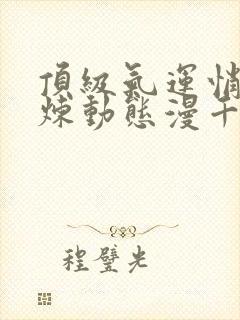 頂級氣運悄
煉動態漫千
程璧光